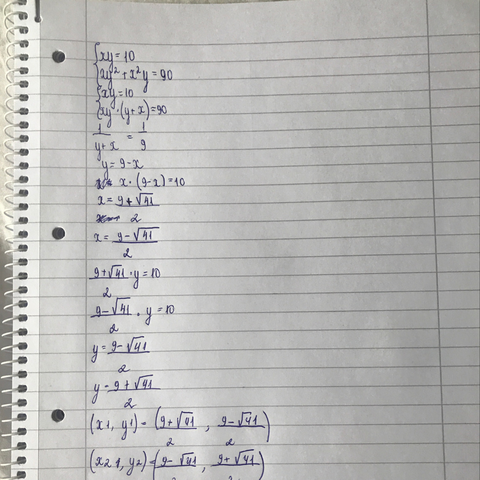 {xy=10
{xy²+x²y=90
{xy=10
{xy·(y+x)=90
1/(y+x) = 1/9
y=9-x
x·(9-x)=10
x=(9+√41)/2
x=(9-√41)/2
(9+√41)/2·y=10
(9-√41)/2·y=10
y=(9-√41)/2
y=(9+√41)/2
(x1, y1)=((9+√41)/2, (9-√41)/2)
(x2, y2)=((9-√41)/2, (9+√41)/2)